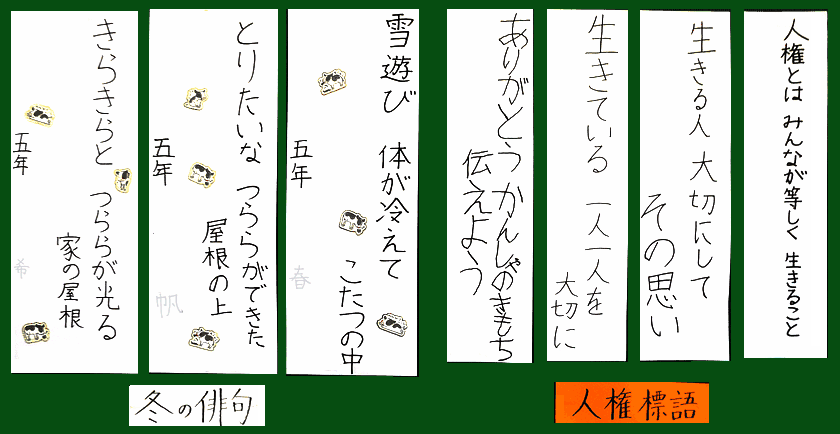 人権とは みんなが等しく 生きること
生きる人 大切にして
その思い
生きている 一人一人を
大切に
ありがとう かんしゃのきもち
伝えよう
人権標語
雪遊び 体が冷えて
こたつの中
五年
春
とりたいな つららができた
屋根の上
五年
帆
きらきらと つららが光る
家の屋根
五年
希
冬の俳句